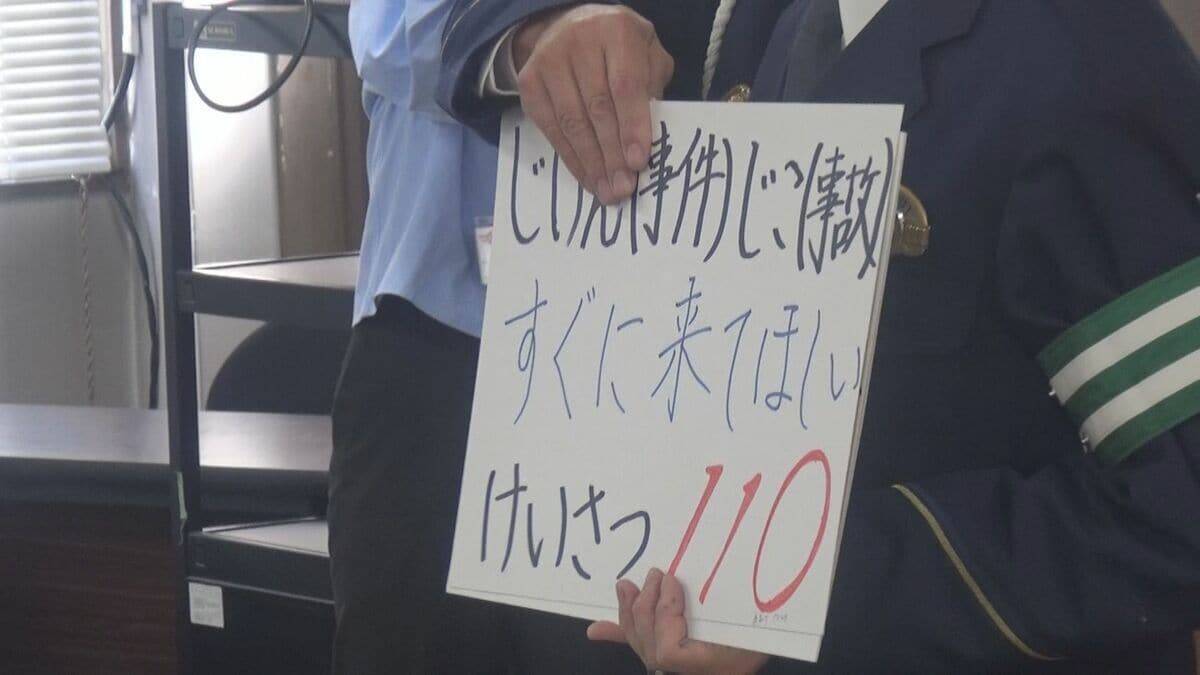 じけん(事件)じこ(事故)
すぐに来てほしい
けいさつ 110